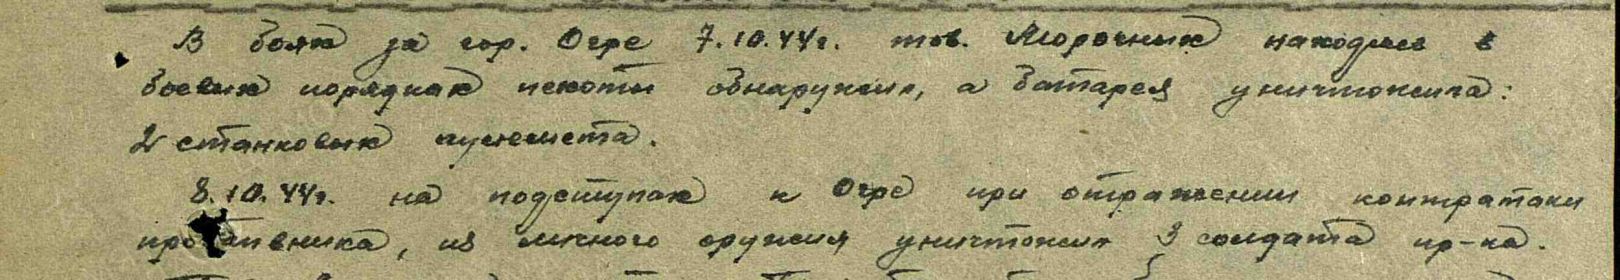 В боях за гор. Огре 7.10.44г. тов. Морочник находясь в
боевых порядках пехоты обнаружил, а батарея уничтожила:
2 станковых пулемета.
8.10.44г. на подступах к Огре при отражении контратаки
противника, из личного оружия уничтожил 3 солдата пр-ка.